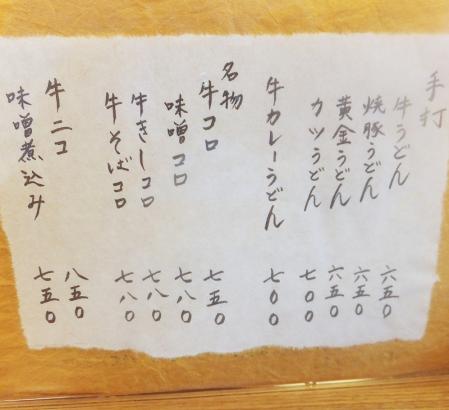 手打
牛うどん 六五〇
焼豚うどん 六五〇
黄金うどん 六五〇
カツうどん 七〇〇
牛カレーうどん 七〇〇
名物
牛コロ 七五〇
味噌コロ 七八〇
牛きしコロ 七八〇
牛そばコロ 七八〇
牛ニコ 八五〇
味噌煮込み 七五〇